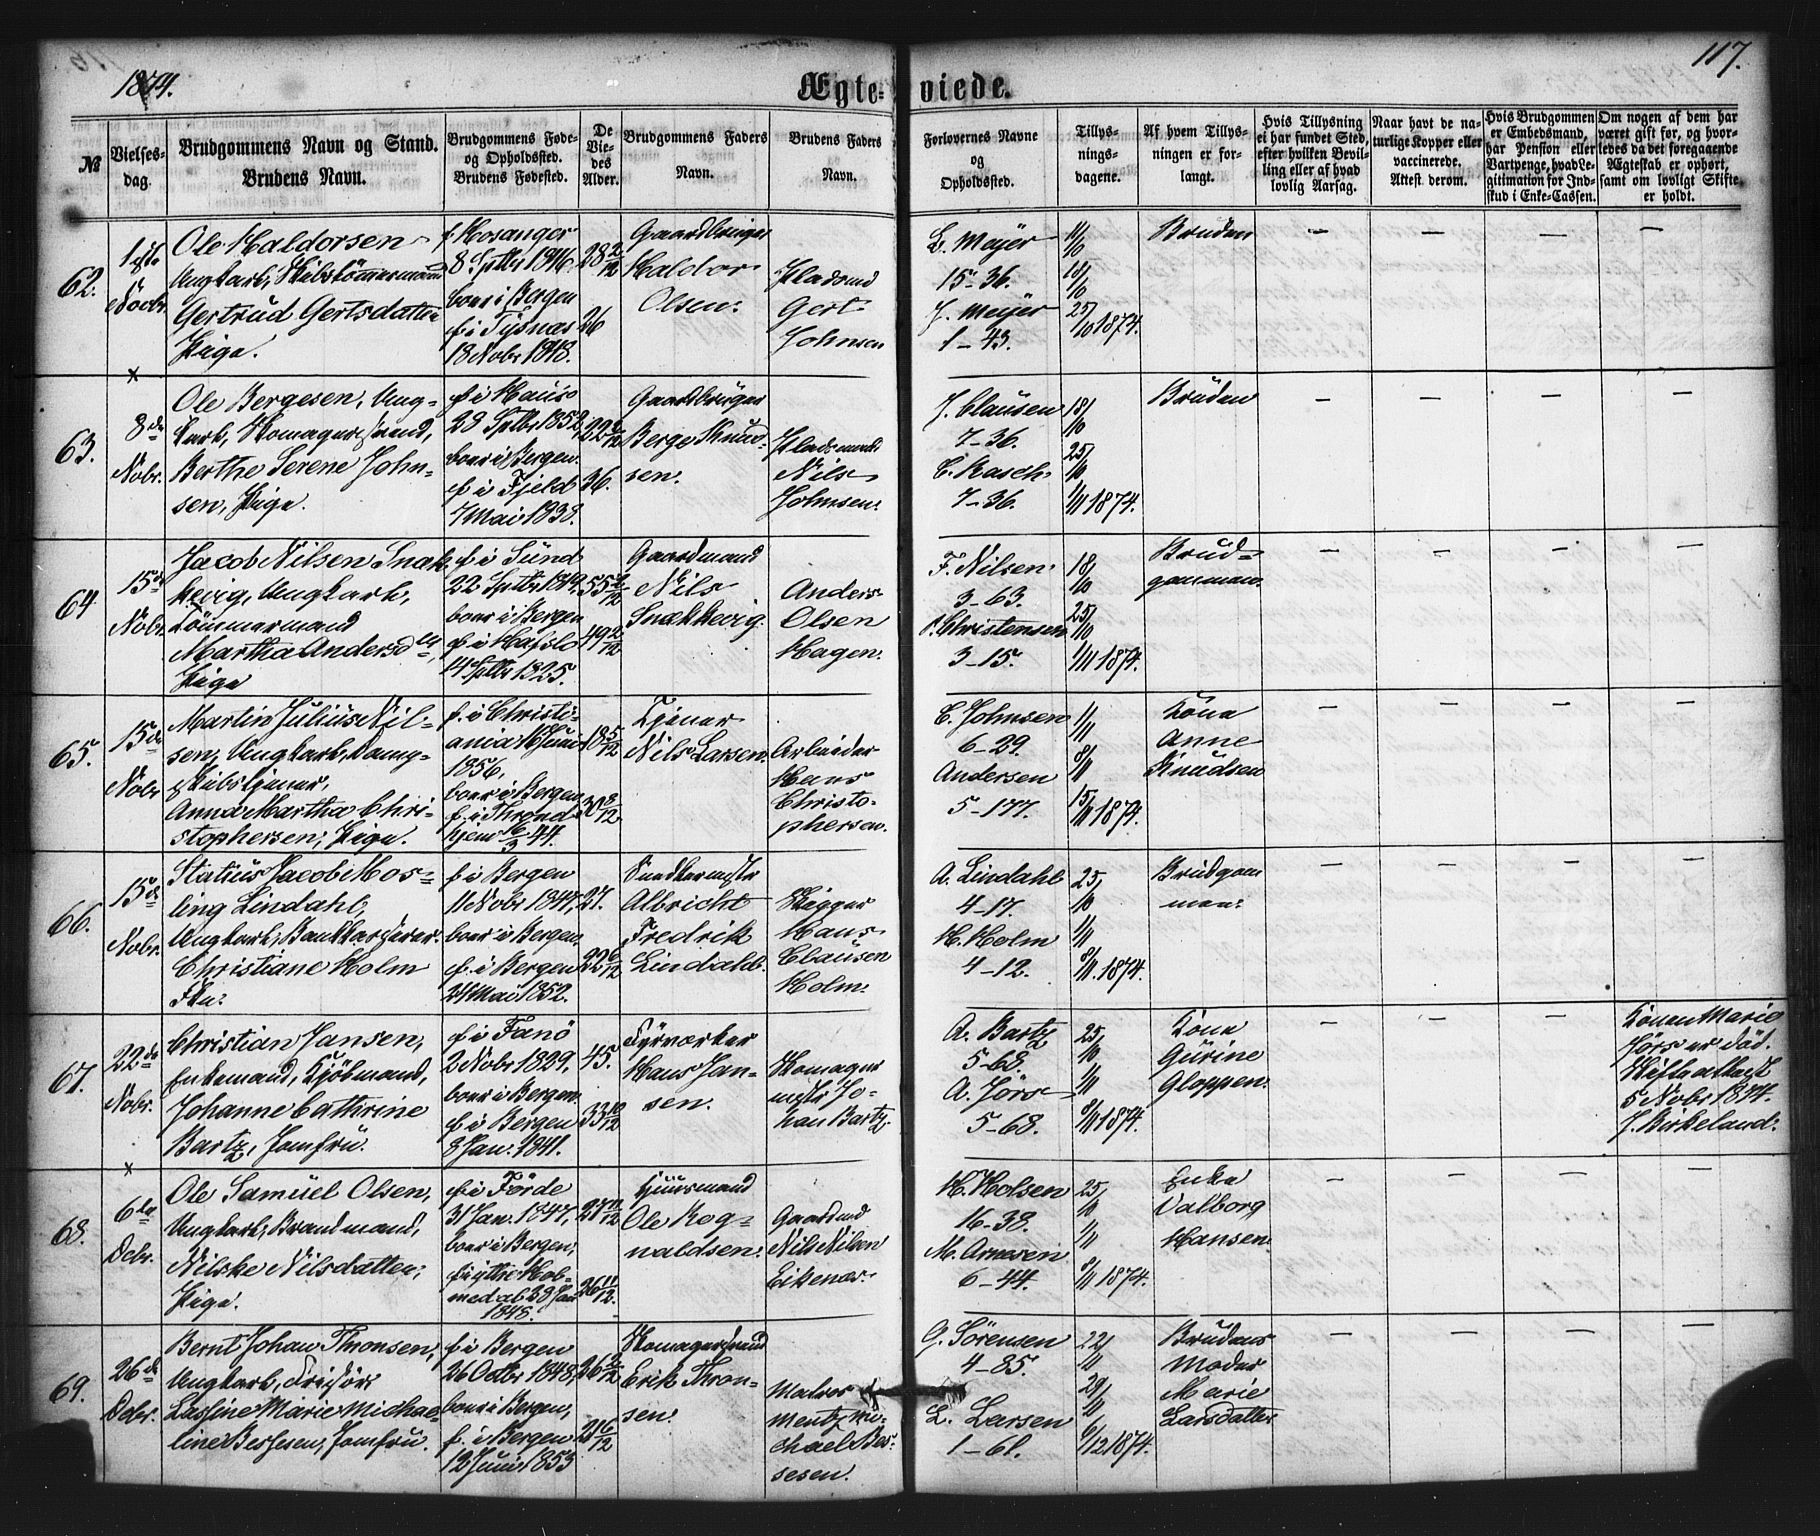 1874.
Ægte-
viede.
117.
№
Vielses-
dag.
Brudgommens Navn og Stand.
Brudens Navn.
Brudgommens Føde-
og Opholdssted.
Brudens Fødested.
De
Vie-
des
Alder.
Brudgommens Faders
Navn.
Brudens Faders
Navn.
Forlovernes Navne
og
Opholdssted.
Tillys-
nings-
dagene.
Af hvem Tillys-
ningen er for-
langt.
Hvis Tillysning
ei har fundet Sted,
efter hvilken Bevil-
ling eller af hvad
lovlig Aarsag.
Naar havt de na-
turlige Kopper eller
vaccinerede.
Attest derom.
Hvis Brudgommen
er Embedsmand,
har Pension eller
Vartpenge, hvad Le-
gitimation for Ind-
skud i Enke-Cassen.
Om nogen af dem har
været gift før, og hvor-
ledes da det foregaaende
Ægteskab er ophørt,
samt om lovligt Skifte
er holdt.
62.
1ste
Novbr.
Ole Haldorsen
Ungkarl, Skibstömmermand
Gertrud Gertsdatter
Pige.
f. Hosanger
8 Septbr 1846.
boer i Bergen
f. i Tysnæs
18 Novbr 1848.
28 2/12
26
Gaardbruger
Haldor
Olsen.
Pladsmd
Gert
Johnsen
L. Meyer
15-36.
J. Meyer
1-43.
11/10
18/10
25/10 1874.
Bruden
— — — —
63.
8de
Nobr.
Ole Bergesen, Ung-
karl, Skomagersvend,
Berthe Serene John-
sen, Pige.
f. i Haus
28 Septbr 1852,
boer i Bergen.
f. i Fjeld
7 Mai 1838.
22 1/12
36.
Gaardbruger
Berge Knud-
sen.
Pladsmand
Nils
Johnsen.
J. Clausen
7-36.
C. Rasch
7-36.
18/10
25/10
1/11 1874.
Bruden
— — — —
64.
15de
Nobr.
Jacob Nilsen Snæk-
kevig, Ungkarl,
Tömmermand
Martha Andersd__,
Pige
f. i Sund
22 Septbr 1819,
boer i Bergen
f. i Hafslo
14 Septbr 1825.
55 2/12
49 2/12
Gaardmand
Nils
Snækkevig.
Anders
Olsen
Hagen.
F. Nilsen
3-63.
P. Christensen
3-15.
18/10
25/10
1/11 1874.
Brud-
gommen.
— — — —
65.
15de
Nobr
Martin Julius Nil-
sen, Ungkarl, Damp-
skibstjener,
Anna Martha Chri-
stophersen, Pige.
f. i Christi-
ania 16 Juni
1856,
boer i Bergen
f. i Thrond-
hjem 16/3 44.
18 5/12
30 8/12
Tjener
Nils Larsen.
Arbeider
Hans
Christo-
phersen.
C. Johnsen
6-29.
Andersen
5-177.
1/11
8/11
15/11 1874.
Kone
Anne
Knudsen
— — — —
66.
15de
Nobr.
Statius Jacob Mos-
ling Lindahl,
Ungkarl, Bankkasserer.
Christiane Holm
Fkn.
f. i Bergen
11 Nobr 1847,
boer i Bergen.
f. i Bergen
24 Mai 1852.
27.
22 6/12
Albricht
Fredrik
Lindahl.
Skipper
Hans
Clausen
Holm.
A. Lindahl
4-17.
H. Holm
4-12.
25/10
1/11
8/11. 1874.
Brudgom
men.
— — — —
67.
22de
Nobr.
Christian Jansen,
Enkemand, Kjöbmand,
Johanne Cathrine
Bartz, Jomfru.
f. i Fanö
2 Nobr 1829,
boer i Bergen.
f. i Bergen
8 Jan. 1841.
45.
33 10/12
Fyrværker
Hans Jan-
sen.
Skomager
mstr Jo-
han Bartz.
A. Bartz
5-68.
A. Jörs
5-68.
25/10
1/11
8/11 1874.
Kone
Gurine
Gloppen.
— — —
Konen Marie
Jörs er död.
Skifteattest
5 Nobr 1874.
J. Birkeland.
68.
6te
Debr.
Ole Samuel Olsen,
Ungkarl, Brandmand,
Nilske Nilsdatter,
Pige.
f. i Förde
31 Jan. 1847,
boer i Bergen,
f. i ytre Hol-
medal 28 Jan
1848.
27 10/12
26 11/12.
Huusmand
Ole Rog-
naldsen.
Gaardmd
Nils Nilsen
Eikenæs.
H. Holsen
16-38.
M. Arnesen
6-44.
25/10
1/11
8/11 1874.
Enke
Valborg
Hansen.
— — — —
69.
26de
Debr.
Bernt Johan Thronsen,
Ungkarl, Frisör,
Lassine Marie Michae-
line Bessesen, Jomfru.
f. i Bergen
26 Octbr 1848,
boer i Bergen,
f. i Bergen
12 Juni 1853
26 2/12
21 6/12
Skomagersvend
Erik Thron-
sen.
Maler
Mentz Mi-
chael Bes-
sesen.
G. Sörensen
4-85.
L. Larsen
1-61.
22/11
29/11
6/12 1874.
Brudens
Moder
Marie
Larsdatter
— — — —